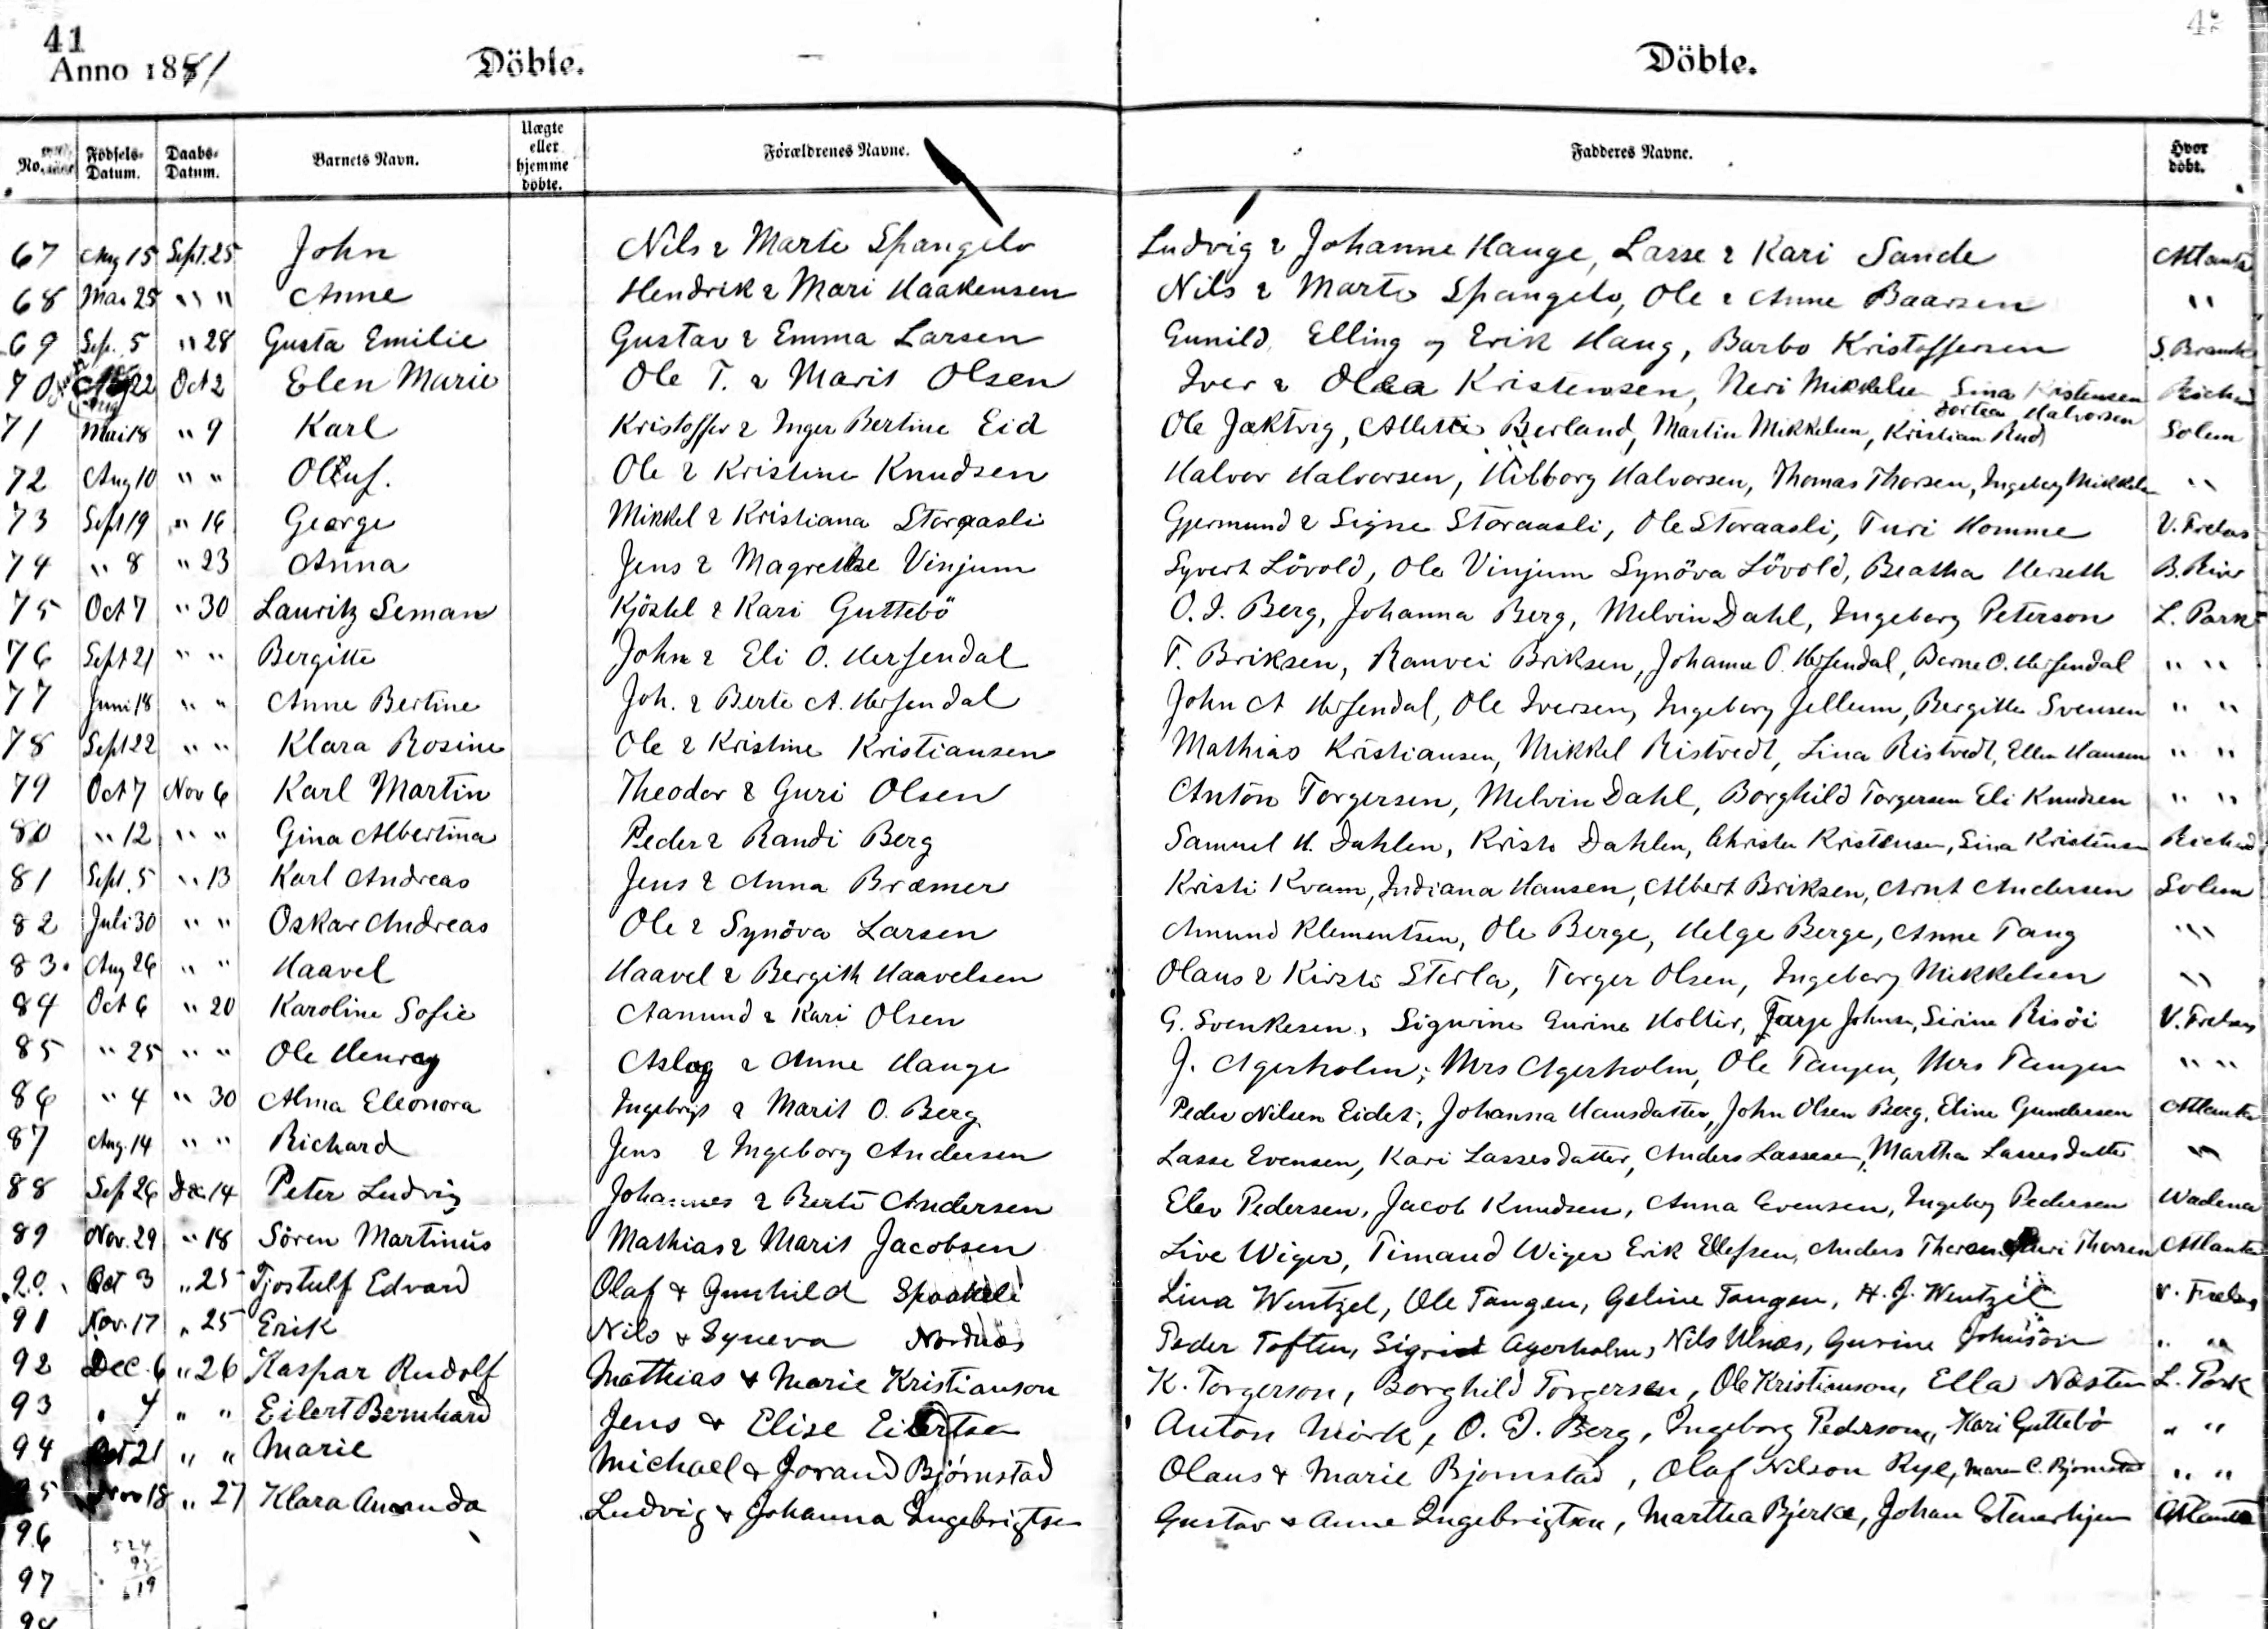 41
42
Anno 1881
Döbte.
Döbte.
No. Födsels-Datum. Daabs-Datum. Barnets Navn. Uægte eller hjemme döbte. Forældrenes Navne. Fadderes Navne. Hvor döbt.
67 Aug 15 Sept. 25 John Nils & Marte Spangelo Ludvig & Johanne Hauge, Lasse & Kari Sande Atlanta
68 Mar 25 " " Anne Hendrik & Mari Haakensen Nils & Marte Spangelo, Ole & Anne Baarsen "
69 Sep. 5 " 28 Gusta Emilie Gustav & Emma Larsen Gunild, Elling og Erik Haug, Barbo Kristoffersen S. Branch
70 Aug 22 Oct 2 Elen Marie Ole T. & Marit Olsen Iver & Olea Kristensen, Neri Mikkelsen Sina Kristensen
71 Mai 18 " 9 Karl Kristoffer & Inger Bertine Eid Ole Jaktvig, Alletta Berland, Martin Mikkelsen, Kristian Rud Dortea Halvorsen Solem
72 Aug 10 " " Oluf. Ole & Kristine Knudsen Halvor Halvorsen, Hilborg Halvorsen, Thomas Thorsen, Ingeborg Mikkelsen "
73 Sept 19 " 16 George Mikkel & Kristiana Storaasli Gjermund & Signe Storaasli, Ole Storaasli, Turi Homme V. Frelsers
74 " 8 " 23 Anna Jens & Magrethe Vinjum Syvert Lövold, Ole Vinjum Synöva Lövold, Beatha Herseth B. River
75 Oct 7 " 30 Lauritz Seman Kjöstel & Kari Guttebö O. J. Berg, Johanna Berg, Melvin Dahl, Ingeborg Peterson L. Park
76 Sept 21 " " Bergitte John & Eli O. Hersendal T. Briksen, Ranvei Briksen, Johanne O. Hersendal, Berne O. Hersendal " "
77 Juni 18 " " Anne Bertine Joh. & Berte A. Hersendal John A Hersendal, Ole Iversen, Ingeborg Jellum, Bergitte Svensen " "
78 Sept 22 " " Klara Rosine Ole & Kristine Kristiansen Mathias Kristiansen, Mikkel Ristvedt, Lina Ristvedt, Ellen Hansen " "
79 Oct 7 Nov 6 Karl Martin Theodor & Guri Olsen Anton Torgersen, Melvin Dahl, Borghild Torgersen Eli Knudsen " "
80 " 12 " " Gina Albertina Peder & Randi Berg Samuel H. Dahlen, Kristi Dahlen, Christen Kristensen, Sina Kristensen
81 Sept. 5 " 13 Karl Andreas Jens & Anna Bræmer Kristi Kvam, Indiana Hansen, Albert Briksen, Arnt Andersen Solem
82 Juli 30 " " Oskar Andreas Ole & Synöva Larsen Amund Klementsen, Ole Berge, Helge Berge, Anne Tang "
83 Aug 26 " " Haavel Haavel & Bergith Haavelsen Olaus & Kirsti Sterla, Torger Olsen, Ingeborg Mikkelsen "
84 Oct 6 " 20 Karoline Sofie Aamund & Kari Olsen G. Svenkesen, Sigurine Gurine Holter, Tarje Johnsen, Sirine Risöi V. Frelsers
85 " 25 " " Ole Henry Aslag & Anne Hauge J. Agerholm; Mrs Agerholm, Ole Tangen, Mrs Tangen " "
86 " 4 " 30 Alma Eleonora Ingebrigt & Marit O. Berg Peder Nilsen Eidet; Johanna Hansdatter, John Olsen Berg, Eline Gundersen Atlanta
87 Aug. 14 " " Richard Jens & Ingeborg Andersen Lasse Evensen, Kari Lassesdatter, Anders Lassesen, Martha Lassesdatter "
88 Sep 26 Dec 14 Peter Ludvig Johannes & Berte Andersen Elev Pedersen, Jacob Knudsen, Anna Evensen, Ingeborg Pedersen Wadena
89 Nov. 29 " 18 Sören Martinus Mathias & Marit Jacobsen Live Wiger, Timand Wiger Erik Ellefsen, Anders Thorsen, Guri Thorsen Atlanta
90 Oct 3 " 25 Tjostulf Edvard Olaf & Gunhild Spaakeli Lina Wentzel, Ole Tangen, Geline Tangen, H. J. Wentzel V. Frelsers
91 Nov. 17 " 25 Erik Nils & Syneva Nordnæs Peder Toften, Sigrid Agerholm, Nils Ulnæs, Gurine Johnson " "
92 Dec. 6 " 26 Kaspar Rudolf Mathias & Marie Kristianson K. Torgerson, Borghild Torgersen, Ole Kristianson, Ella Næsten L. Park
93 " 7 " " Eilert Bernhard Jens & Elise Eilertsen Anton Mörk, O. J. Berg, Ingeborg Pederson, Kari Guttebö " "
94 Oct 21 " " Marie Michael & Jorand Björnstad Olaus & Marie Bjornstad, Olaf Nilson Rye, Maren C. Bjornstad " "
95 Nov 18 " 27 Klara Amanda Ludvig & Johanna Ingebrigtsen Gustav & Anne Ingebrigtsen, Martha Bjerke, Johan Stenerhjem Atlanta
96 524
95
97 619
98